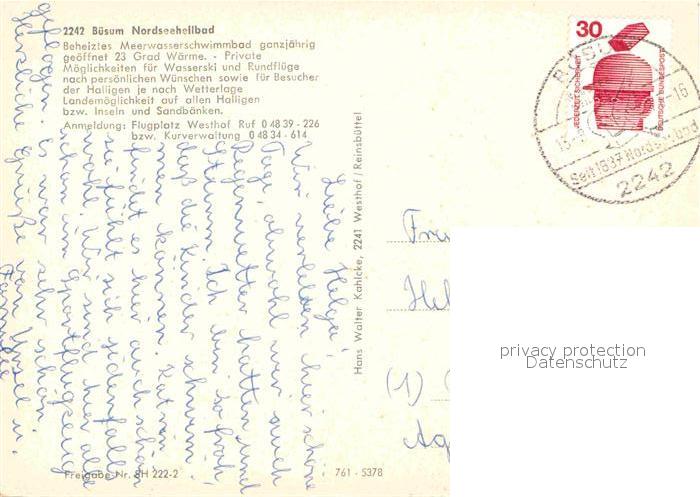 2242 Büsum Nordseeheilbad
Beheiztes Meerwasserschwimmbad ganzjährig
geöffnet 23 Grad Wärme. - Private
Möglichkeiten für Wasserski und Rundflüge
nach persönlichen Wünschen sowie für Besucher
der Halligen je nach Wetterlage
Landemöglichkeit auf allen Halligen
bzw. Inseln und Sandbänken.
Anmeldung: Flugplatz Westhof Ruf 0 48 39 - 226
bzw. Kurverwaltung 0 48 34 - 614
Liebe Helga!
Wir verleben hier schöne
Tage, obwohl wir auch
Regenwetter hatten und
Sturm. Ich bin so froh
daß die Kinder schwim-
men können. Kat
findet es hier auch schön
sie fühlt sich jedenfalls
wohl. Wir sind hier alle
schon im Sportflugzeug
geflogen. Es war sehr schön.
Herzliche Grüße von Ursel u.
Familie
Hans Walter Kahlcke, 2241 Westhof / Reinsbüttel
Freigabe Nr. SH 222-2
761 - 5378
30
JEDERZEIT SICHERHEIT
DEUTSCHE BUNDESPOST
BÜSU
-16
Seit 1837 Nordseebad
2242
Hel
(1)
privacy protection
Datenschutz